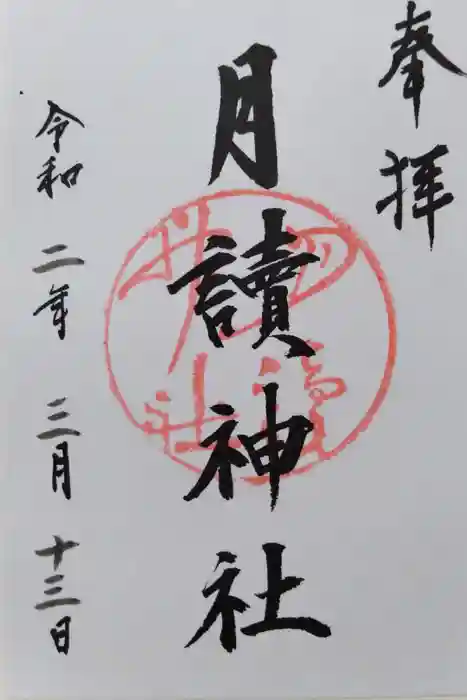 奉拝
月讀神社
令和二年三月十三日